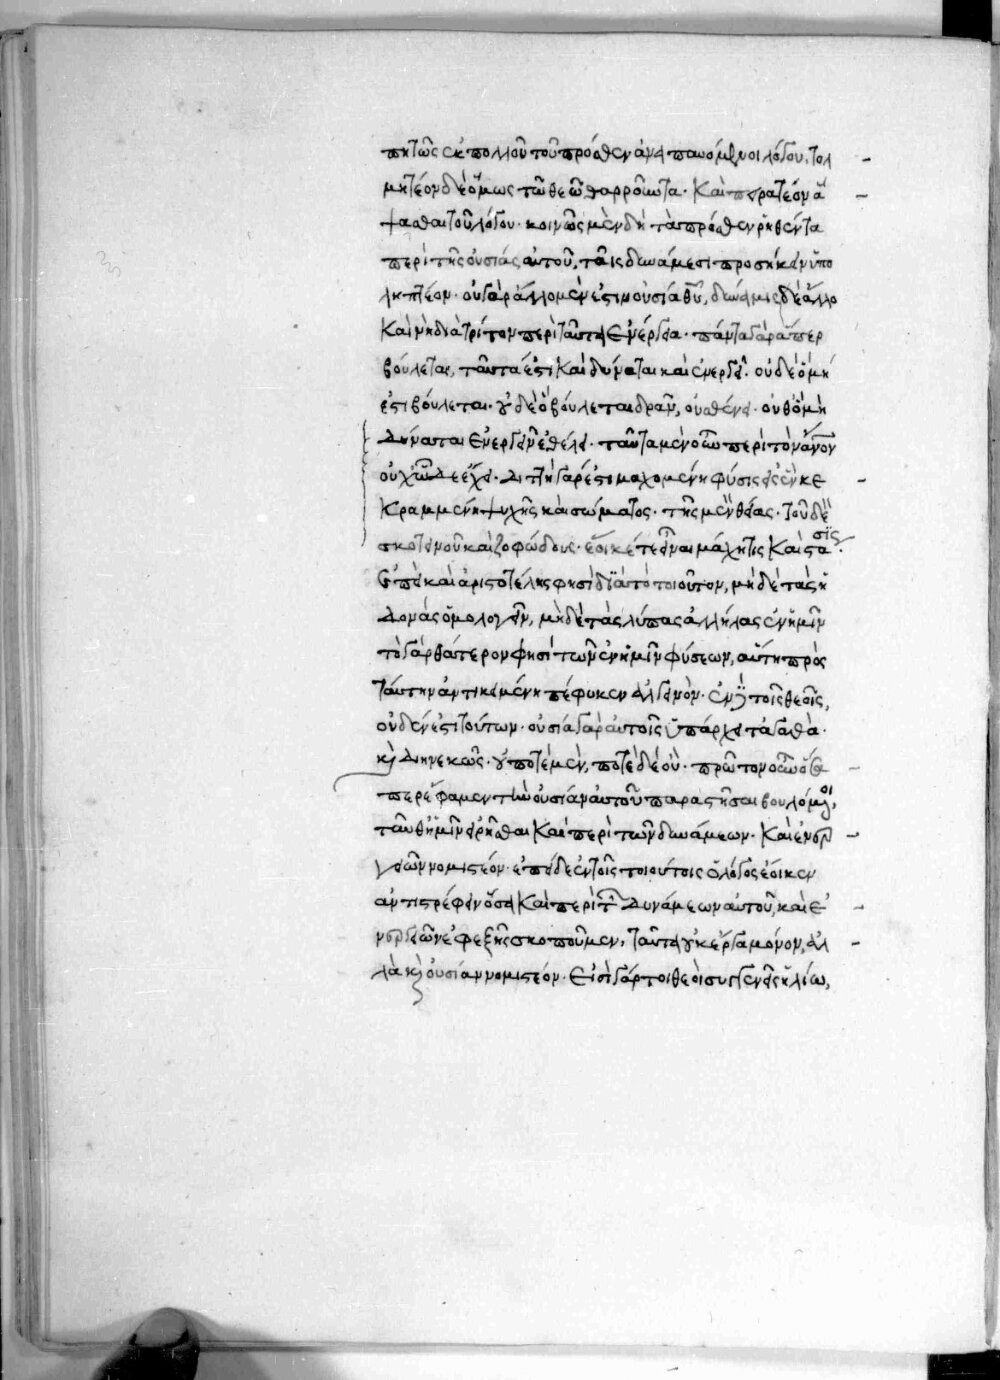 πητῶς ἐκ πολλοῦ τοῦ πρόσθεν ἀναπαυόμενοι λόγου, τολ
μητέον δὲ ὅμως τῷ θεῷ θαρροῦντα. Καὶ πειρατέον ἅ
ψασθαι τοῦ λόγου. κοινῶς μὲν δὴ τὰ πρόσθεν ῥηθέντα
περὶ τῆς οὐσίας αὐτοῦ, ταῖς δυνάμεσι προσήκειν ὑπο
ληπτέον. οὐ γὰρ ἄλλο μέν ἐστιν οὐσία θεοῦ, δύναμις δὲ ἄλλο
Καὶ νὴ δία τρίτον περὶ ταῦτα ἐνέργεια. πάντα γὰρ ἅπερ
βούλεται, ταῦτά ἐστι καὶ δύναται καὶ ἐνεργεῖ. οὐδὲ ὃ μή
ἐστι βούλεται. οὐδὲ ὃ βούλεται δρᾶν, οὐ σθένει. οὐθ' ὃ μὴ
δύναται ἐνεργεῖν ἐθέλει. ταῦτα μὲν οὖν περὶ τὸν ἄνθρωπον
οὐχ ὧδε ἔχει. διττὴ γάρ ἐστι μαχομένη φύσις εἰς ἓν κε
κραμμένη ψυχῆς καὶ σώματος. τῆς μὲν θείας. τοῦ δὲ
σκοτεινοῦ καὶ ζοφώδους. ἔοικέ τε εἶναι μάχη τις Καὶ στάσις.
ἐπεὶ καὶ ἀριστοτέλης φησὶ διὰ τὸ τοιοῦτον, μηδὲ τὰς ἡ
δονὰς ὁμολογεῖν, μηδὲ τὰς λύπας ἀλλήλαις ἐν ἡμῖν
τὸ γὰρ θατέρᾳ φησὶ τῶν ἐν ἡμῖν φύσεων, αὕτη πρὸς
ταύτην ἀντικειμένη πέφυκεν ἀλγεινόν. ἐν δὲ τοῖς θεοῖς,
οὐδέν ἐστι τούτων. οὐσία γὰρ αὐτοῖς ὑπάρχει τἀγαθά.
καὶ διηνεκῶς. οὐ ποτὲ μέν, ποτὲ δὲ οὔ. πρῶτον οὖν ὅσα
περ ἔφαμεν τὴν οὐσίαν αὐτοῦ παραστῆσαι βουλόμενοι,
ταῦθ' ἡμῖν εἰρῆσθαι Καὶ περὶ τῶν δυνάμεων. Καὶ ἐνερ
γειῶν νομιστέον. ἐπεὶ δὲ ἐν τοῖς τοιούτοις ὁ λόγος ἔοικεν
ἀντιστρέφειν ὅσα Καὶ περὶ τῶν δυνάμεων αὐτοῦ, καὶ ἐ
νεργειῶν ἐφεξῆς σκοποῦμεν, ταῦτα οὐκ ἔργα μόνον, ἀλ
λὰ καὶ οὐσίαν νομιστέον. Εἰσὶ γάρ τοι θεοὶ συγγενεῖς ἡλίῳ,